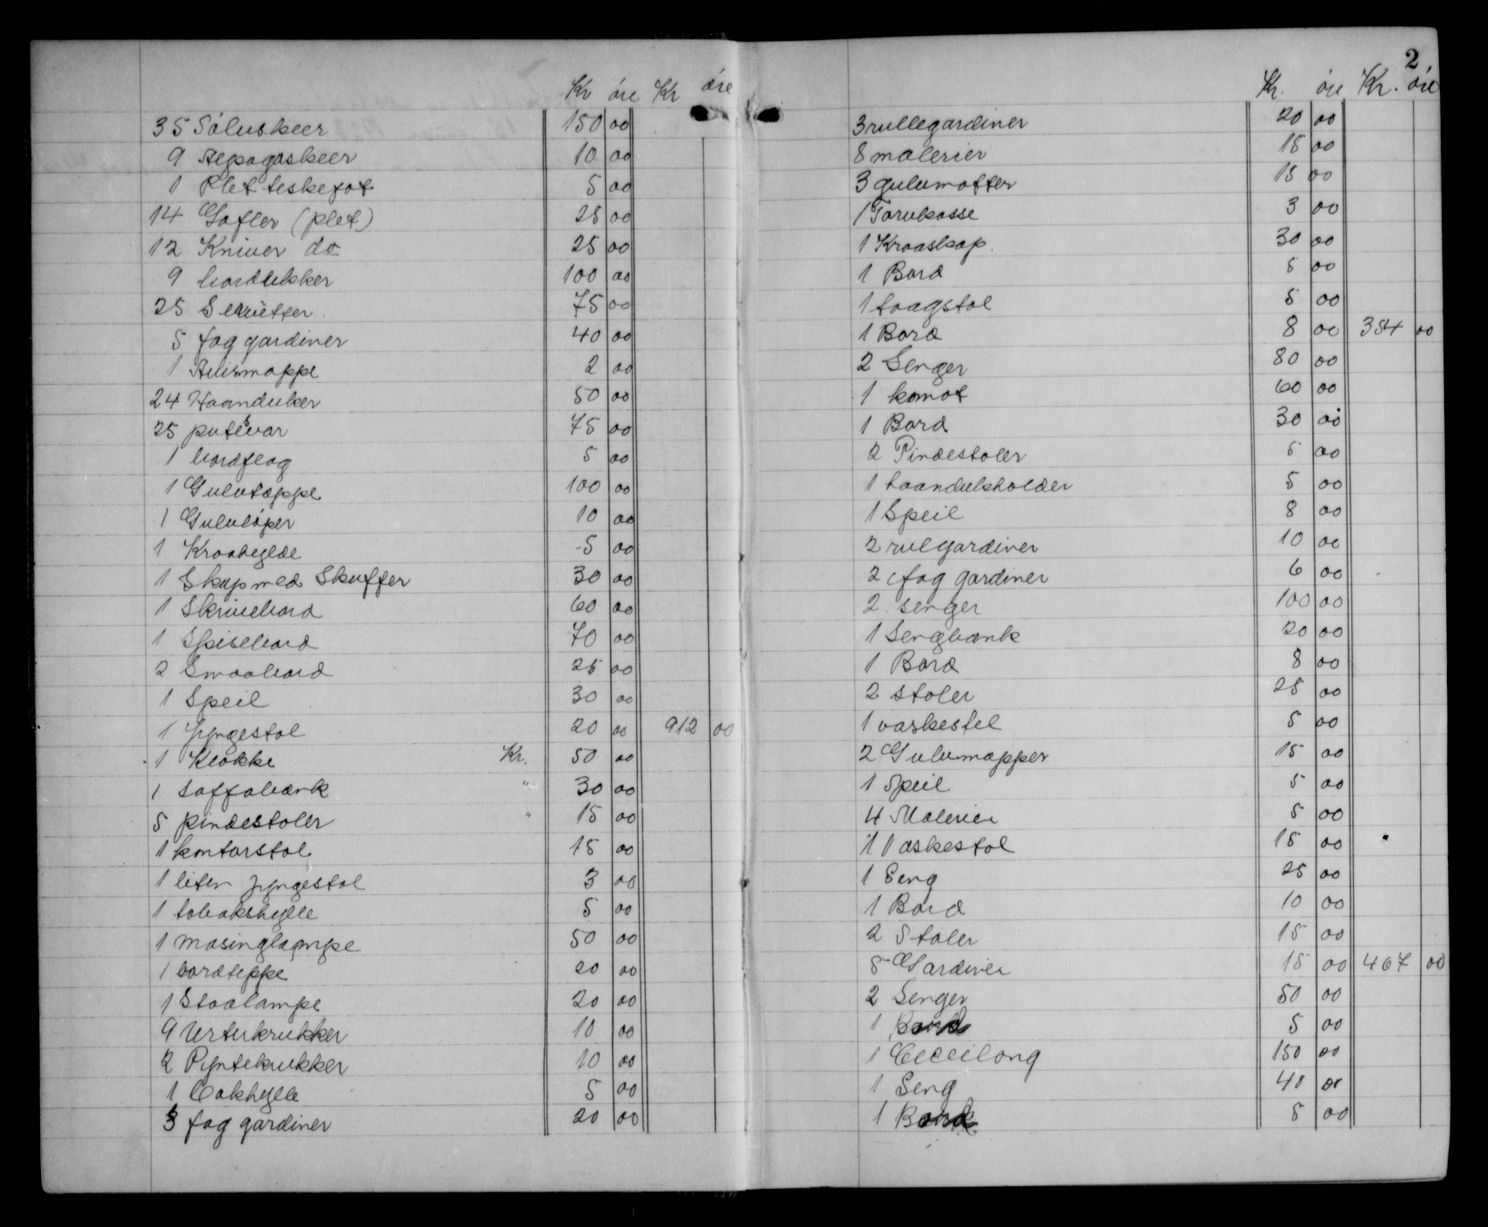 Kr øre Kr øre
35 Sölvskeer 150 00
9 Aspagaskeer 10 00
1 Plet teskefat 5 00
14 Gafler (plet) 25 00
12 Kniver do 25 00
9 bordukker 100 00
25 Servietter 75 00
5 fag gardiner 40 00
1 Avismappe 2 00
24 Haanduker 50 00
25 putevar 75 00
1 bordflag 5 00
1 Gulvteppe 100 00
1 Gulvlöper 10 00
1 Kroahylde 5 00
1 Skap med Skuffer 30 00
1 Skrivebord 60 00
1 Spisebord 70 00
2 Smaabord 25 00
1 Speil 30 00
1 Jyngestol 20 00 912 00
1 Klokke Kr. 50 00
1 Soffabænk " 30 00
5 pindestoler " 15 00
1 kontorstol 15 00
1 liten jyngestol 3 00
1 tobakshylle 5 00
1 masinglampe 50 00
1 bordteppe 20 00
1 Staalampe 20 00
9 Urtekrukker 10 00
2 Pyntekrukker 10 00
1 Bokhylle 5 00
3 fag gardiner 20 00
2
Kr. øre Kr. øre
3 rullegardiner 20 00
8 malerier 15 00
3 gulvmatter 15 00
1 Torvkasse 3 00
1 Kroaskap. 30 00
1 Bord 5 00
1 taagstol 5 00
1 Bord 8 00 354 00
2 Senger 80 00
1 komot 60 00
1 Bord 30 00
2 Pindestoler 5 00
1 haandukholder 5 00
1 Speil 8 00
2 rulgardiner 10 00
2 fag gardiner 6 00
2 senger 100 00
1 Sengbænk 20 00
1 Bord 8 00
2 stoler 25 00
1 vaskestel 5 00
2 Gulvmapper 15 00
1 Speil 5 00
4 Malerier 5 00
1 Vaskestol 15 00
1 Seng 25 00
1 Bord 10 00
2 Stoler 15 00
5 Gardiner 15 00 467 00
2 Senger 50 00
1 Bord 5 00
1 Ceceilong 150 00
1 Seng 40 00
1 Bord 5 00